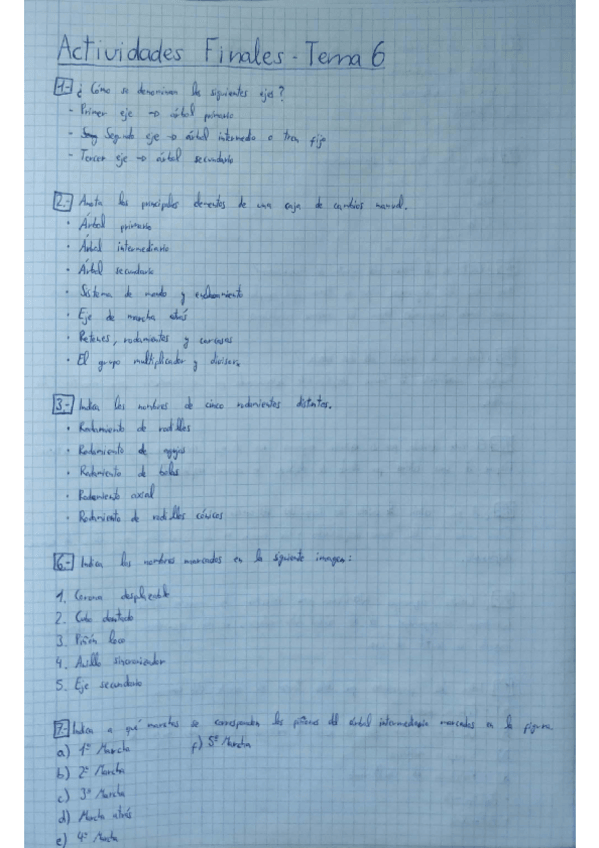 Actividades Finales - Tema 6
1.- ¿Cómo se denominan los siguientes ejes?
- Primer eje → árbol primario
- Segundo eje → árbol intermedio o tren fijo
- Tercer eje → árbol secundario
2.- Anota los principales elementos de una caja de cambios manual.
• Árbol primario
• Árbol intermediario
• Árbol secundario
• Sistema de mando y enclavamiento
• Eje de marcha atrás
• Retenes, rodamientos y carcasas
• El grupo multiplicador y divisor.
3.- Indica los nombres de cinco rodamientos distintos.
• Rodamiento de rodillos
• Rodamiento de agujas
• Rodamiento de bolas
• Rodamiento axial
• Rodamiento de rodillos cónicos
6.- Indica los nombres marcados en la siguiente imagen:
1. Corona desplazable
2. Cubo dentado
3. Piñón loco
4. Anillo sincronizador
5. Eje secundario
7.- Indica a qué marchas se corresponden los piñones del árbol intermediario marcados en la figura
a) 1ª Marcha f) 5ª Marcha
b) 2ª Marcha
c) 3ª Marcha
d) Marcha atrás
e) 4ª Marcha